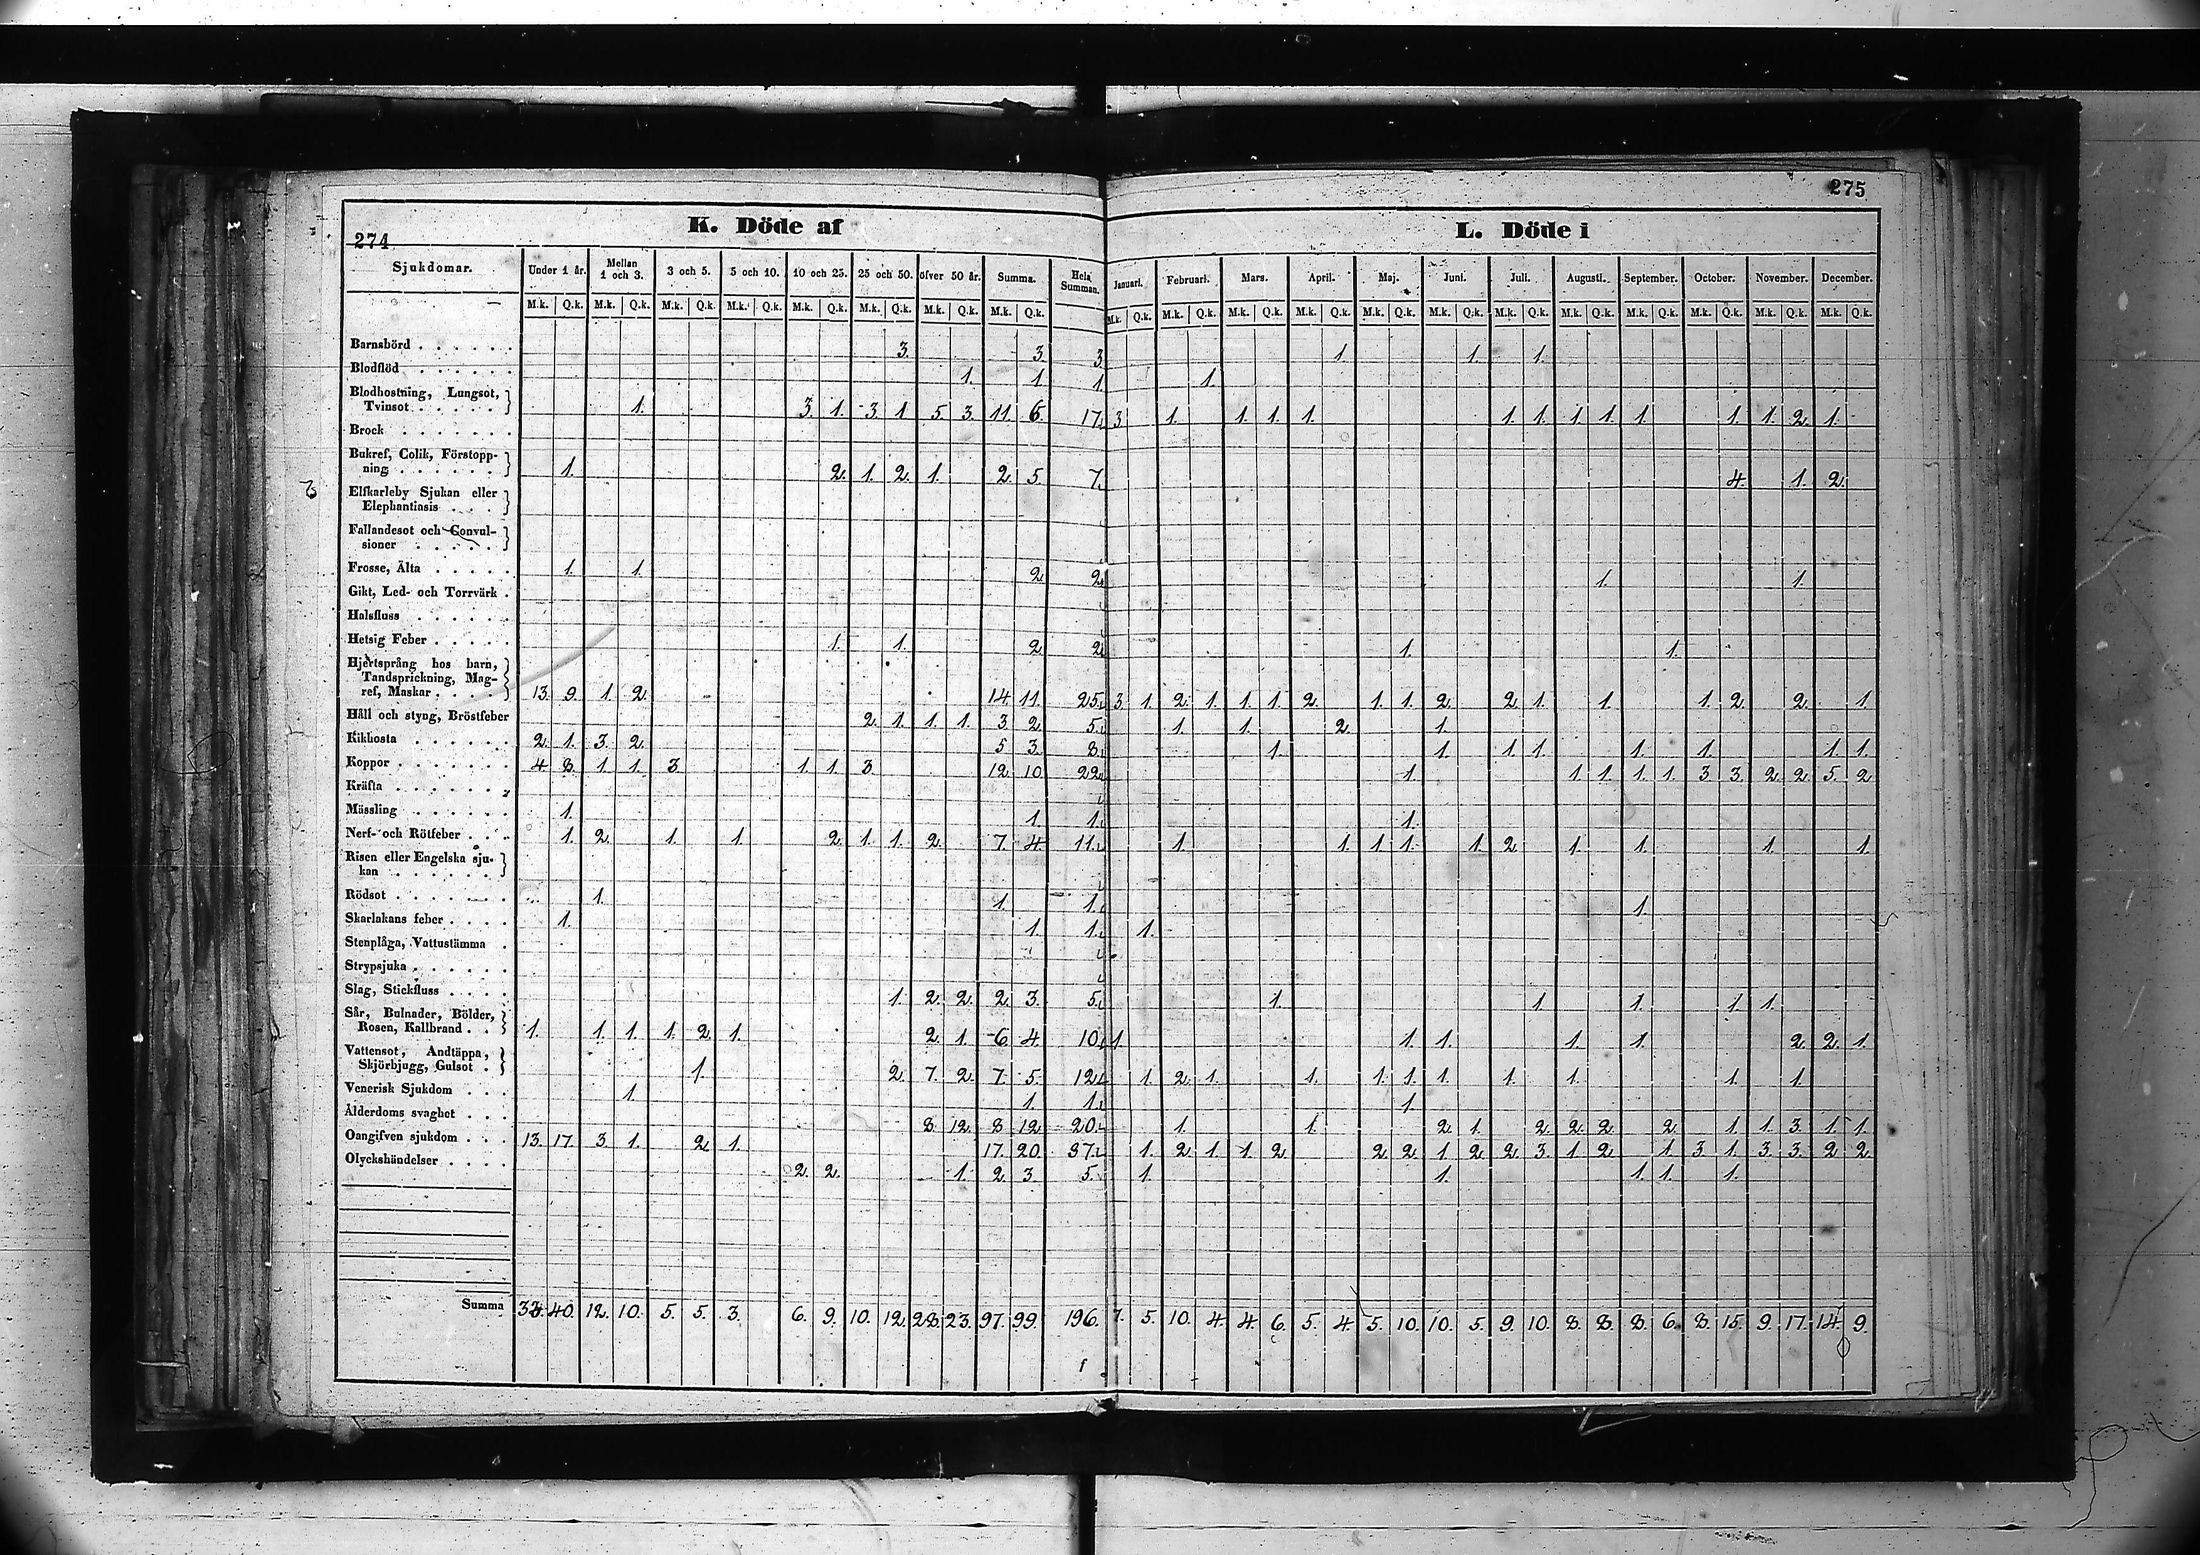 274
K. Döde af
L. Döde i
275
Sjukdomar. Under 1 år. Mellan 1 och 3. 3 och 5. 5 och 10. 10 och 25. 25 och 50. öfver 50 år. Summa. Hela Summan. Januari. Februari. Mars. April. Maj. Juni. Juli. Augusti. September. October. November. December.
M.k. Q.k. M.k. Q.k. M.k. Q.k. M.k. Q.k. M.k. Q.k. M.k. Q.k. M.k. Q.k. M.k. Q.k. M.k. Q.k. M.k. Q.k. M.k. Q.k. M.k. Q.k. M.k. Q.k. M.k. Q.k. M.k. Q.k. M.k. Q.k. M.k. Q.k. M.k. Q.k. M.k. Q.k. M.k. Q.k.
Barnsbörd 3. 3. 3 1. 1. 1.
Blodflöd 1. 1 1. 1.
Blodhostning, Lungsot,
Tvinsot 1. 3. 1. 3. 1 5. 3. 11. 6. 17. 3 1. 1. 1. 1. 1. 1. 1. 1. 1. 1. 1. 2. 1.
Brock
Bukref, Colik, Förstopp-
ning 1. 2. 1. 2. 1. 2. 5. 7. 4. 1. 2.
Elfkarleby Sjukan eller
Elephantiasis
Fallandesot och Convul-
sioner
Frosse, Älta 1. 1. 2 2 1. 1.
Gikt, Led- och Torrvärk
Halsfluss
Hetsig Feber 1. 1. 2 2 1. 1.
Hjertsprång hos barn,
Tandsprickning, Mag-
ref, Maskar 13. 9. 1. 2. 14. 11. 25. 3 1. 2. 1. 1. 1. 2. 1. 1. 2. 2. 1. 1. 1. 2. 2. 1.
Håll och styng, Bröstfeber 2. 1. 1. 1. 3. 2. 5. 1. 1. 2. 1.
Kikhosta 2. 1. 3. 2. 5 3. 8. 1. 1. 1. 1. 1. 1. 1. 1.
Koppor 4. 8. 1. 1. 3. 1. 1. 3. 12. 10. 22. 1. 1. 1. 1. 1. 3. 3. 2. 2. 5. 2
Kräfta
Mässling 1. 1. 1. 1.
Nerf- och Rötfeber 1. 2. 1. 1. 2. 1. 1. 2. 7. 4. 11. 1. 1. 1. 1. 1. 2. 1. 1. 1. 1.
Risen eller Engelska sju-
kan
Rödsot 1. 1. 1. 1.
Skarlakans feber 1. 1. 1. 1.
Stenplåga, Vattustämma
Strypsjuka
Slag, Stickfluss 1. 2. 2. 2. 3. 5. 1. 1. 1. 1. 1.
Sår, Bulnader, Bölder,
Rosen, Kallbrand 1. 1. 1. 1. 2. 1. 2. 1. 6 4. 10. 1 1. 1. 1. 1. 2. 2. 1.
Vattensot, Andtäppa,
Skjörbjugg, Gulsot 1. 2. 7. 2. 7. 5. 12. 1. 2. 1. 1. 1. 1. 1. 1. 1. 1. 1.
Venerisk Sjukdom 1. 1. 1. 1.
Ålderdoms svaghet 8. 12. 8. 12. 20. 1. 1. 2. 1. 2. 2. 2. 2. 1. 1. 3. 1. 1
Oangifven sjukdom 13. 17. 3. 1. 2. 1. 17. 20. 37. 1. 2. 1. 1. 2. 2. 2. 1. 2. 2. 3. 1. 2. 1. 3. 1. 3. 3. 2. 2
Olyckshändelser 2. 2. 1. 2. 3. 5. 1. 1. 1. 1. 1.
Summa 40. 12. 10. 5. 5. 3. 6. 9. 10. 12. 28. 23. 97. 99. 196. 7. 5. 10. 4. 4. 6. 5. 4. 5. 10. 10. 5. 9. 10. 8. 8. 8. 6. 8. 15. 9. 17. 14. 9.